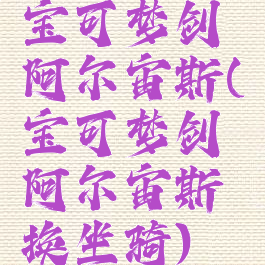 宝可梦剑
阿尔宙斯(
宝可梦剑
阿尔宙斯
换坐骑)